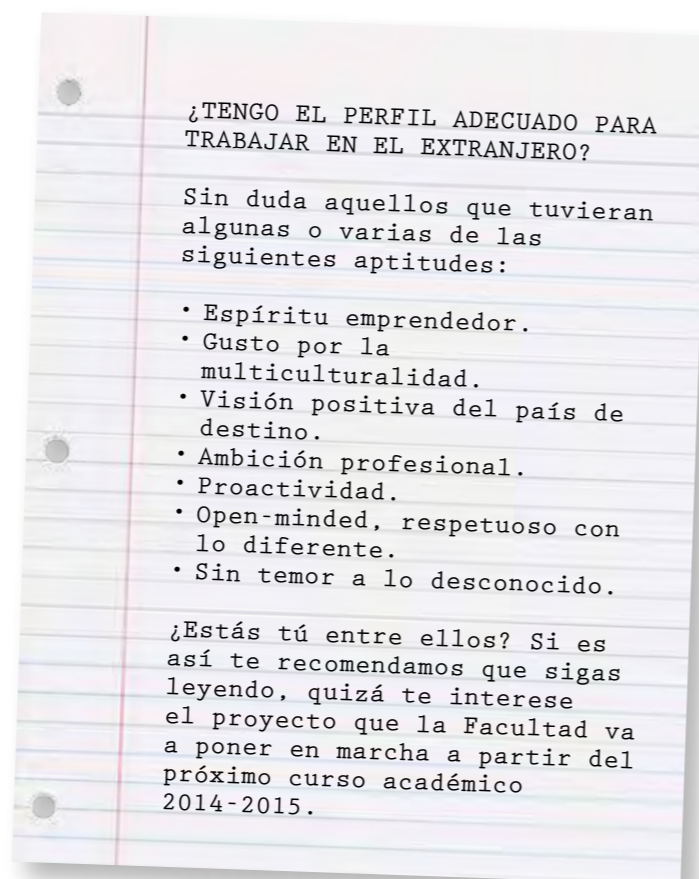 ¿TENGO EL PERFIL ADECUADO PARA
TRABAJAR EN EL EXTRANJERO?
Sin duda aquellos que tuvieran
algunas o varias de las
siguientes aptitudes:
• Espíritu emprendedor.
• Gusto por la
multiculturalidad.
• Visión positiva del país de
destino.
• Ambición profesional.
• Proactividad.
• Open-minded, respetuoso con
lo diferente.
• Sin temor a lo desconocido.
¿Estás tú entre ellos? Si es
así te recomendamos que sigas
leyendo, quizá te interese
el proyecto que la Facultad va
a poner en marcha a partir del
próximo curso académico
2014-2015.